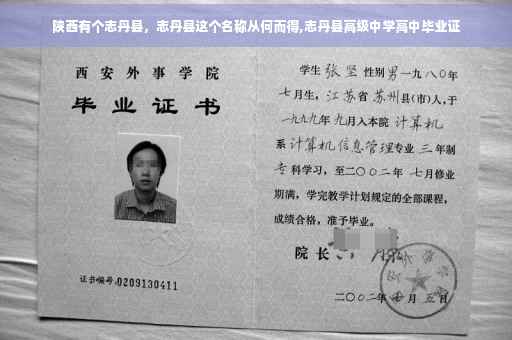 陕西有个志丹县，志丹县这个名称从何而得,志丹县高级中学高中毕业证
西安外事学院
毕业证书
证书编号:0209130411
学生 张坚 性别男一九八〇年
七月生，江苏省苏州县(市)人，于
一九九九年九月入本院 计算机
系计算机信息管理专业三年制
专科学习，至二〇〇二年七月修业
期满，学完教学计划规定的全部课程，
成绩合格，准予毕业。
院长
二〇〇二年 月五日